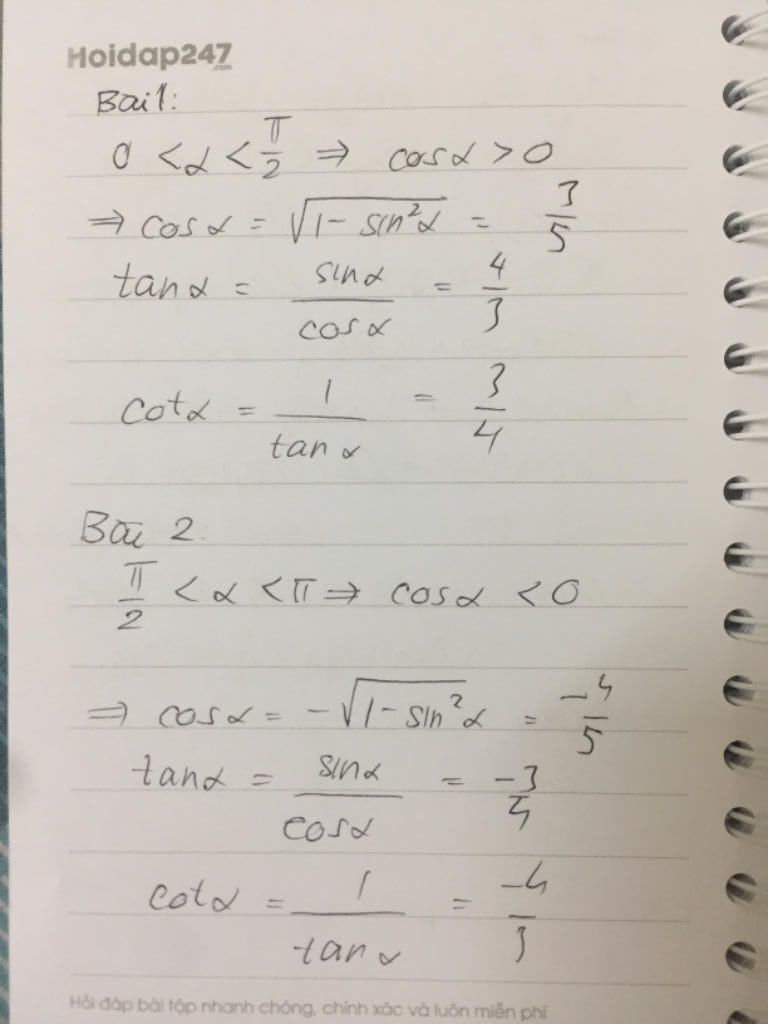 Hoidap247
.com
Bài 1:
0 < α < π/2 ⇒ cosα > 0
⇒ cosα = √(1 - sin²α) = 3/5
tanα = sinα/cosα = 4/3
cotα = 1/tanα = 3/4
Bài 2:
π/2 < α < π ⇒ cosα < 0
⇒ cosα = -√(1 - sin²α) = -4/5
tanα = sinα/cosα = -3/4
cotα = 1/tanα = -4/3
Hỏi đáp bài tập nhanh chóng, chính xác và luôn miễn phí